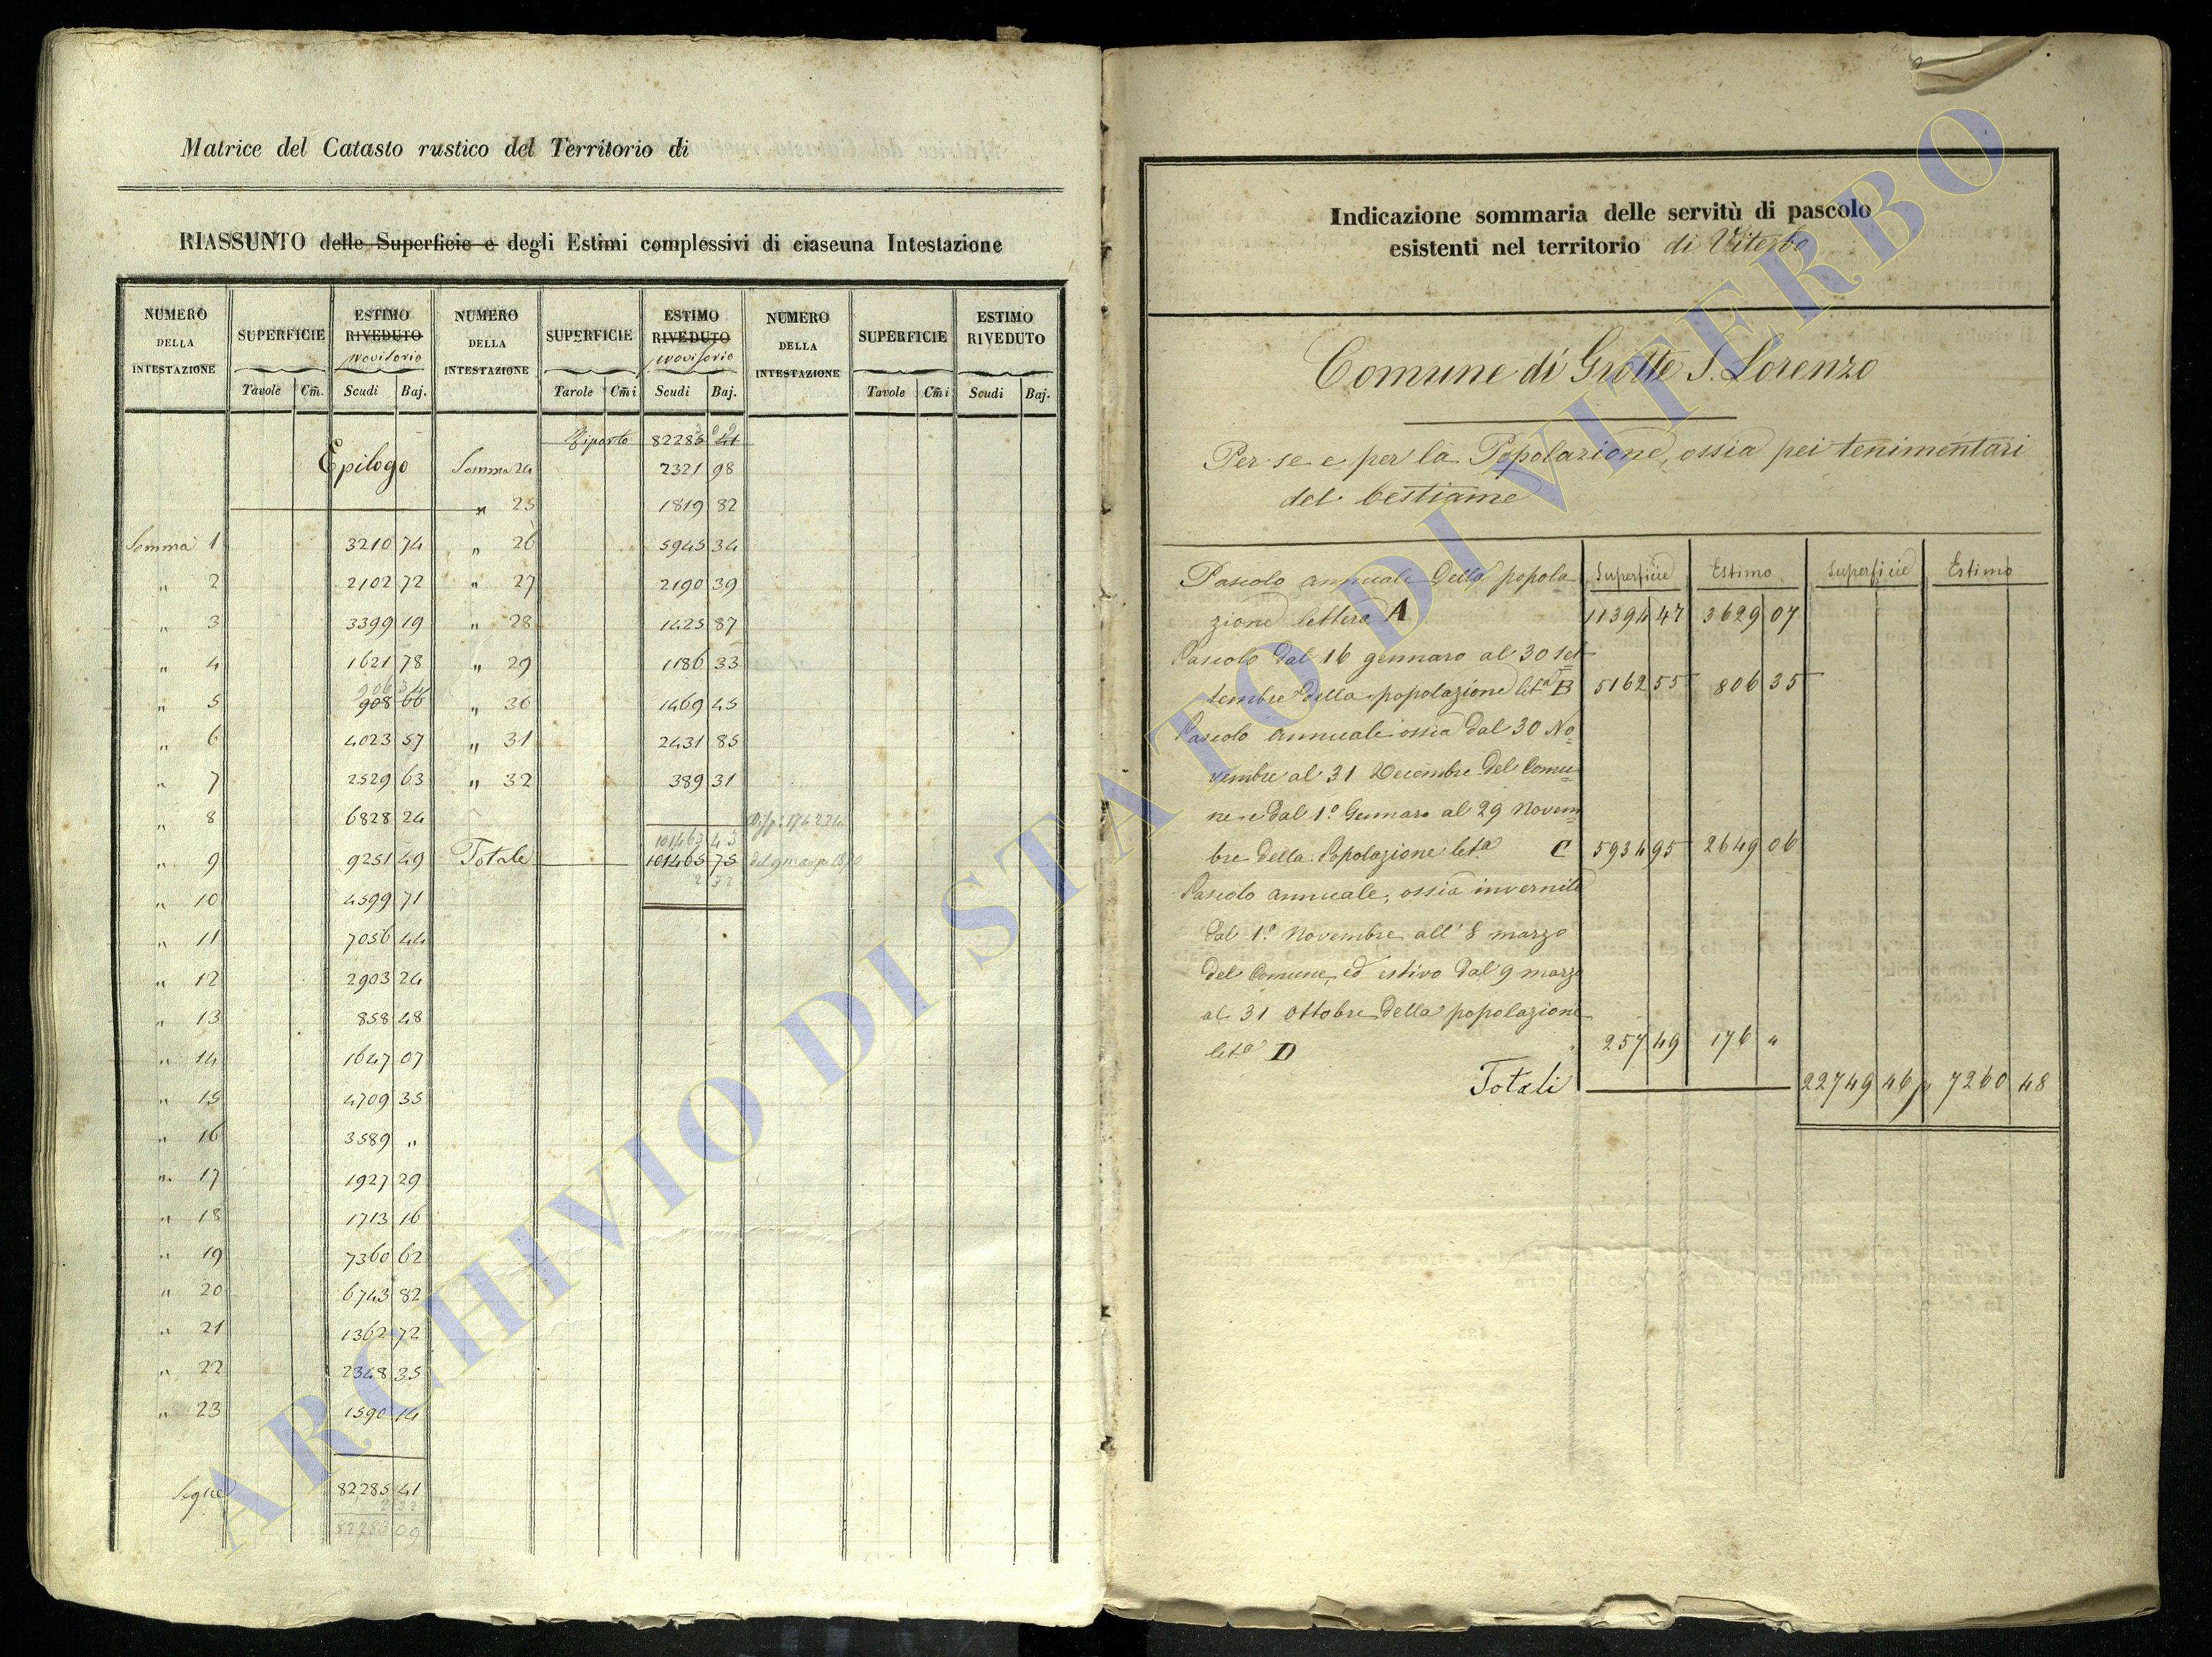 Matrice del Catasto rustico del Territorio di
RIASSUNTO delle Superficie e degli Estimi complessivi di ciascuna Intestazione
NUMERO DELLA INTESTAZIONE | SUPERFICIE Tavole Cm̃. | ESTIMO RIVEDUTO provisorio Scudi Baj. | NUMERO DELLA INTESTAZIONE | SUPERFICIE Tavole Cm̃i | ESTIMO RIVEDUTO provisorio Scudi Baj. | NUMERO DELLA INTESTAZIONE | SUPERFICIE Tavole Cm̃i | ESTIMO RIVEDUTO Scudi Baj.
Epilogo
Somma 1 3210 74
" 2 2102 72
" 3 3399 19
" 4 1621 78
906 34
" 5 908 66
" 6 4023 57
" 7 2529 63
" 8 6828 24
" 9 9251 49
" 10 4599 71
" 11 7056 44
" 12 2903 24
" 13 858 48
" 14 1647 07
" 15 4709 35
" 16 3589 "
" 17 1927 29
" 18 1713 16
" 19 7360 62
" 20 6743 82
" 21 1362 72
" 22 2348 35
" 23 1590 14
Segue 82285 41
2 32
82283 09
Riporto 82285 41
Somma 24 2321 98
" 25 1819 82
" 26 5945 34
" 27 2190 39
" 28 1425 87
" 29 1186 33
" 30 1469 45
" 31 2431 85
" 32 389 31
101463 43
Totale 101465 75
2 32
del 9 marzo
Indicazione sommaria delle servitù di pascolo
esistenti nel territorio di Viterbo
Comune di Grotte S. Lorenzo
Per se e per la Popolazione, ossia pei tenimentari
del bestiame
Superficie Estimo Superficie Estimo
Pascolo annuale della popola
zione lettera A 11394 47 3629 07
Pascolo dal 16 gennaro al 30 Set
tembre della popolazione let.ª B 5162 55 806 35
Pascolo annuale ossia dal 30 No
vembre al 31 Decembre del Comu
ne e dal 1.º Gennaro al 29 Novem
bre della Popolazione let.ª C 5934 95 2649 06
Pascolo annuale, ossia invernile
dal 1.º Novembre all' 8 marzo
del Comune, ed estivo dal 9 marzo
al 31 Ottobre della popolazione
let.ª D 257 49 176 "
Totali 22749 46 7260 48
ARCHIVIO DI STATO DI VITERBO